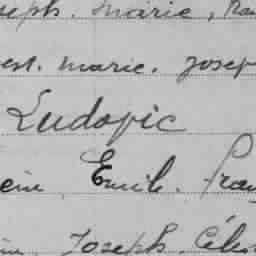 seph. Marie,
est. marie. Josep
Ludovic
eine, Emile. Fran
Joseph. Céles